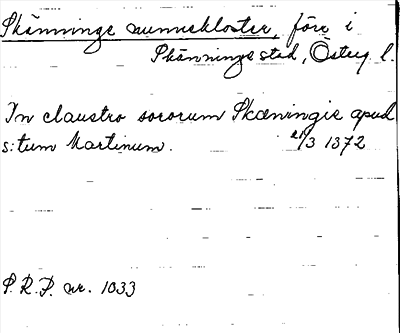 Skänninge nunnekloster, förr i
Skänninge stad, Österg l.
In claustro sororum Skæningie apud
s:tum Martinum. 21/3 1372
P.R.P. nr. 1033